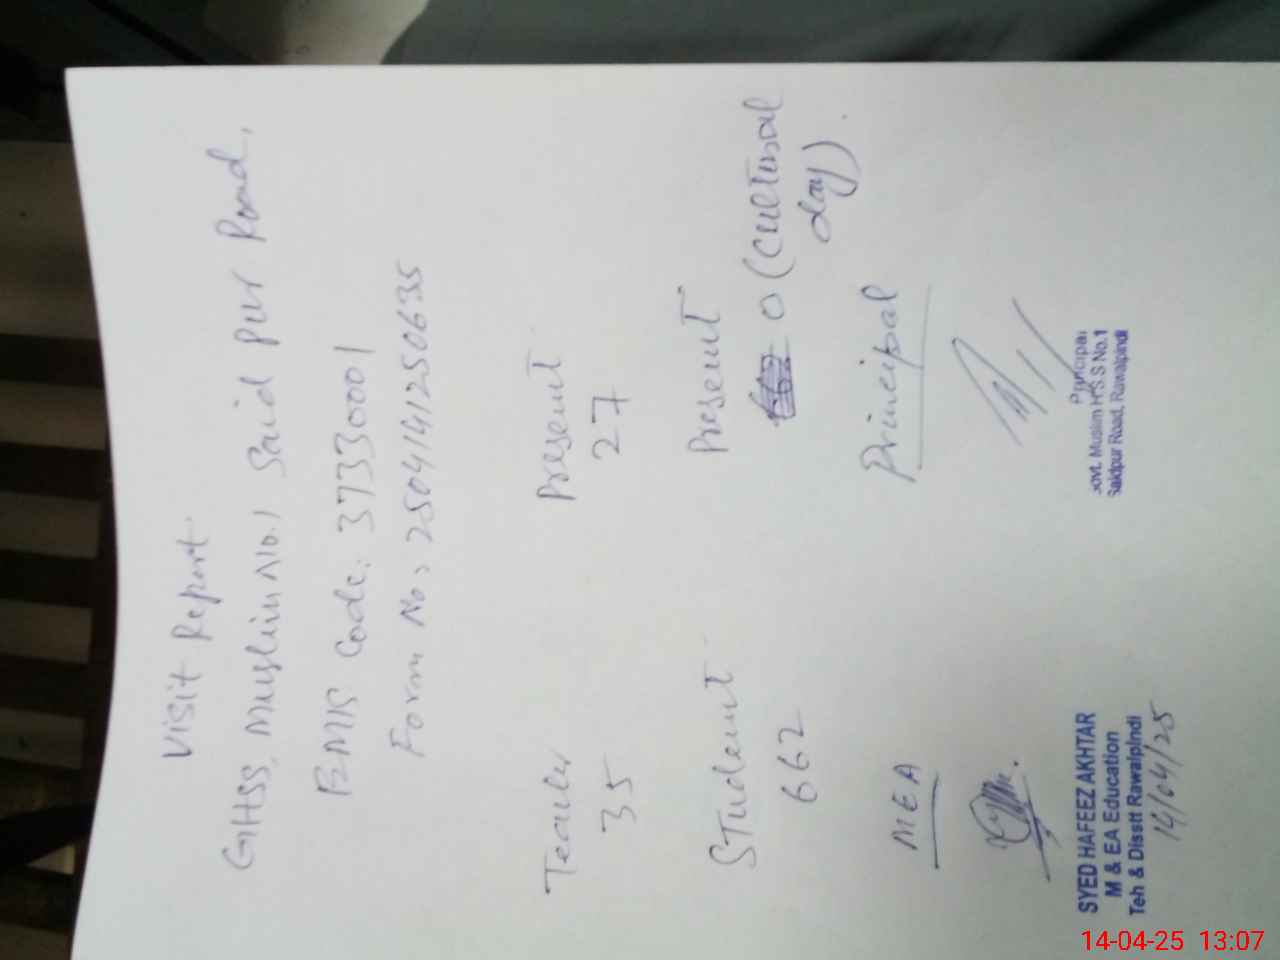 Visit Report
GHSS, Muslim No.1 Said pur Road,
EMIS Code: 37330001
Form No: 2504141250635
Teacher Present
35 27
Student Present
662 0 (Cultural
day).
MEA Principal
SYED HAFEEZ AKHTAR
M & EA Education
Teh & Disstt Rawalpindi
14/04/25
Principal
Govt. Muslim H.S.S No.1
Saidpur Road, Rawalpindi
14-04-25 13:07